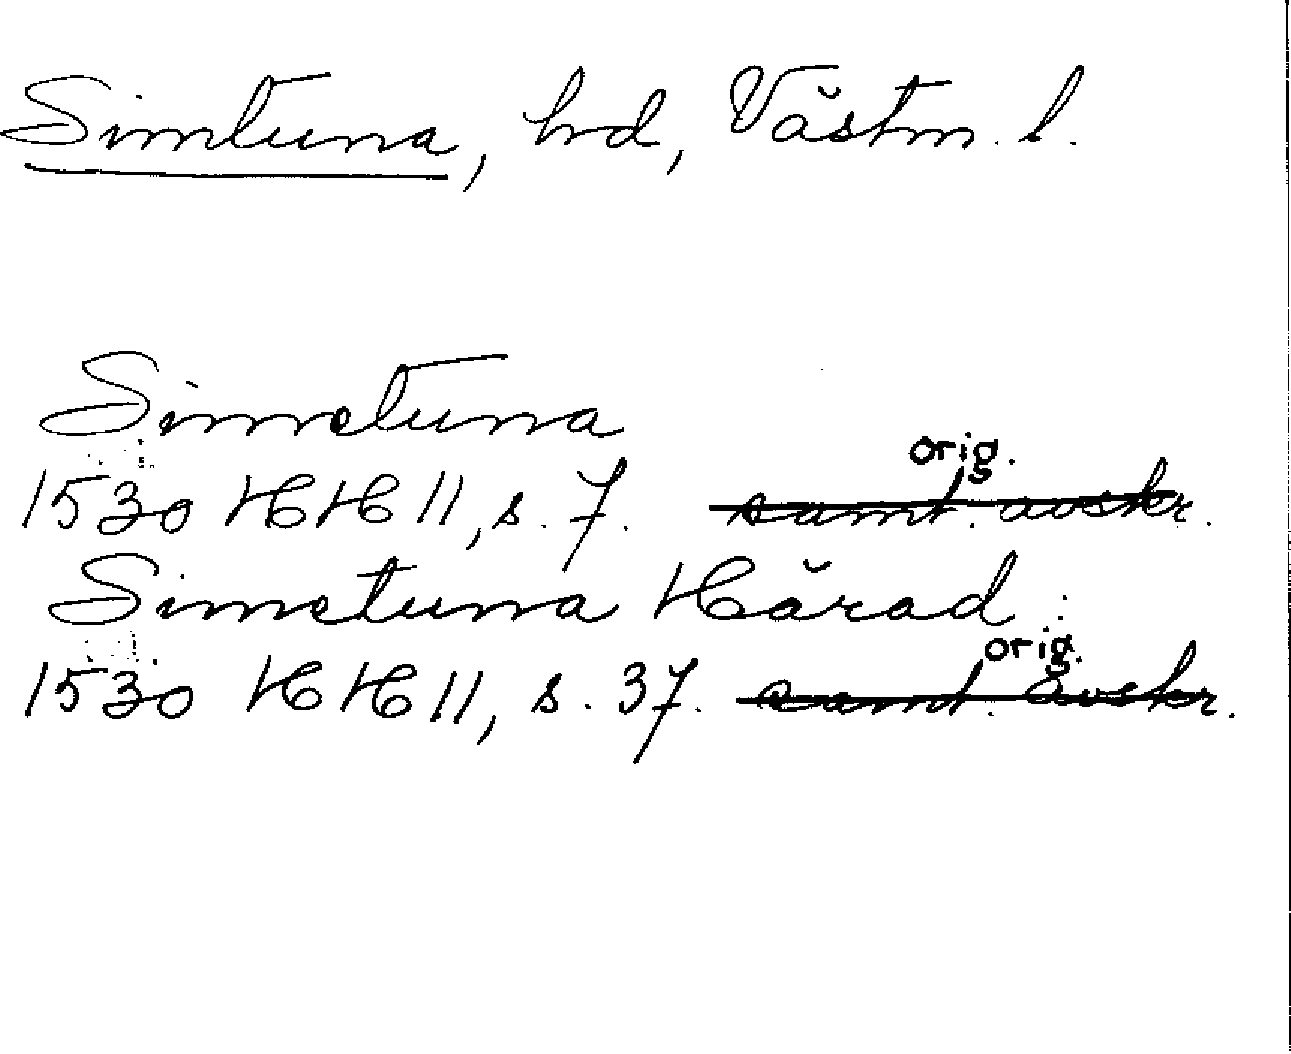 Simtuna, hd, Västm. l.
Simetuna
orig.
1530 HH 11, s. 7. samt. avskr.
Simetuna Härad
orig.
1530 HH 11, s. 37. samt. avskr.